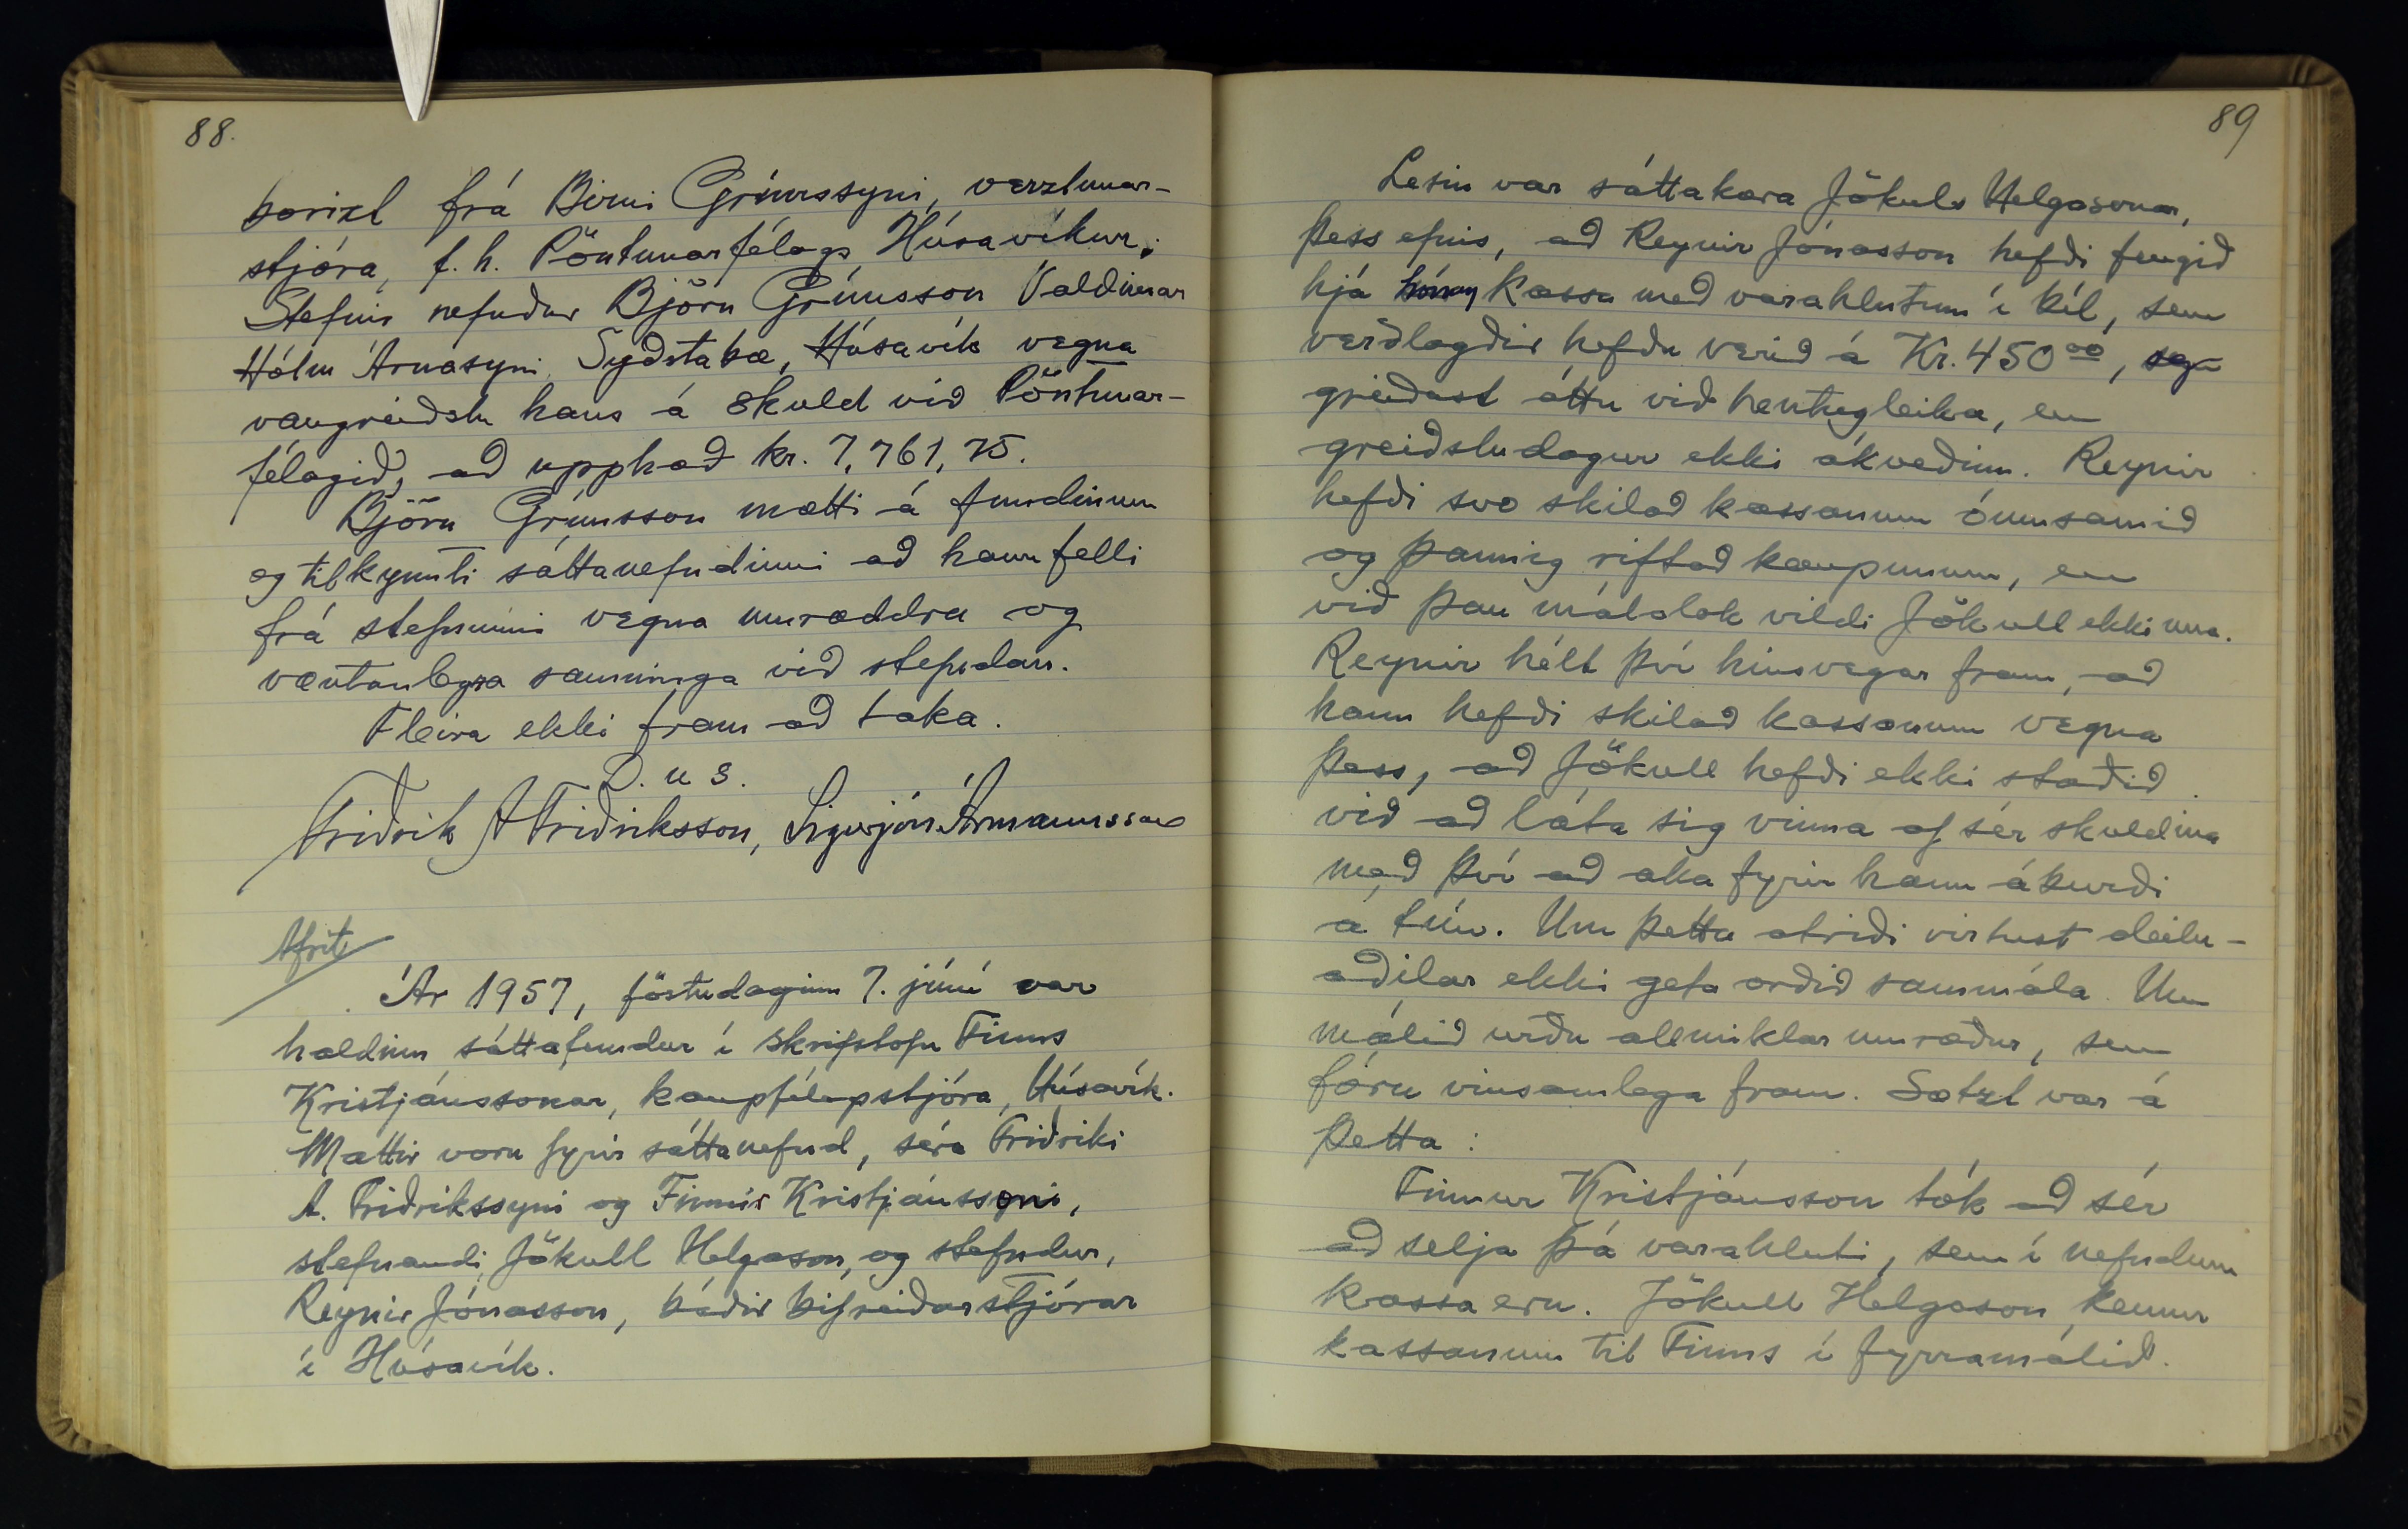 88.
borizt frá Birni Grímssyni, verzlunar-
stjóra, f.h. Pöntunarfélags Húsavíkur.
Stefnir nefndur Björn Grímsson Valdimar
Hólm Árnasyni Syðstabæ, Húsavík vegna
vangreiðslu hans á skuld við Pöntunar-
félagið, að upphæð kr. 7,761,75.
Björn Grímsson mætti á fundinum
og tilkynnti sáttanefndinni að hann felli
frá stefnunni vegna umræddra og
væntanlegra samninga við stefndan.
Fleira ekki fram að taka.
D. u s.
Friðrik A Friðriksson, Sigurjón Ármannsson
Afrit
Ár 1957, föstudaginn 7. júní var
haldinn sáttafundur í skrifstofu Finns
Kristjánssonar, kaupfélagsstjóra, Húsavík.
Mættir voru fyrir sáttanefnd, séra Friðriki
A. Friðrikssyni og Finni Kristjánssyni,
stefnandi, Jökull Helgason, og stefndur,
Reynir Jónasson, báðir bifreiðarstjórar
í Húsavík.
89
Lesin var sáttakæra Jökuls Helgasonar,
þess efnis, að Reynir Jónasson hefði fengið
hjá honum kassa með varahlutum í bíl, sem
verðlagðir hefðu verið á Kr. 450 00,
greiðast áttu við hentugleika, en
greiðsludagur ekki ákveðinn. Reynir
hefði svo skilað kassanum óumsamið
og þannig riftað kaupunum, en
við þau málalok vildi Jökull ekki una.
Reynir hélt því hinsvegar fram, að
hann hefði skilað kassanum vegna
þess, að Jökull hefði ekki staðið
við að láta sig vinna af sér skuldina
með því að aka fyrir hann áburði
á tún. Um þetta atriði virtust deilu-
aðilar ekki geta orðið sammála. Um
málið urðu allmiklar umræður, sem
fóru vinsamlega fram. Sætzt var á
þetta:
Finnur Kristjánsson tók að sér
að selja þá varahluti, sem í nefndum
kassa eru. Jökull Helgason kemur
kassanum til Finns í fyrramálið.